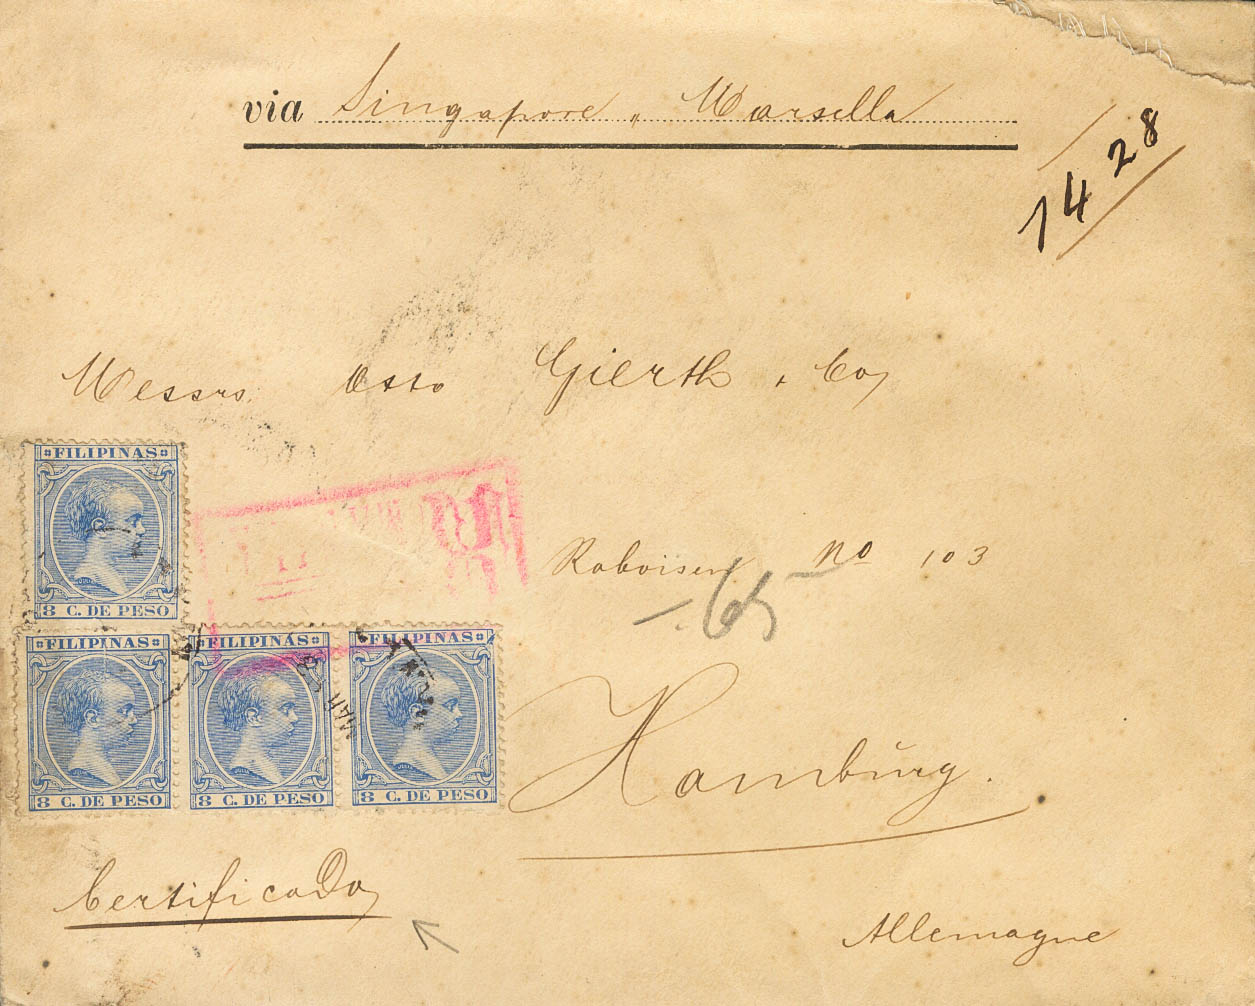 via Singapore " Marsella
14 28
Messrs Otto Gierth & Coy
FILIPINAS
8 C. DE PESO
Raboisen No 103
65
FILIPINAS FILIPINAS FILIPINAS
8 C. DE PESO 8 C. DE PESO 8 C. DE PESO
Hamburg.
Certificado
Allemagne